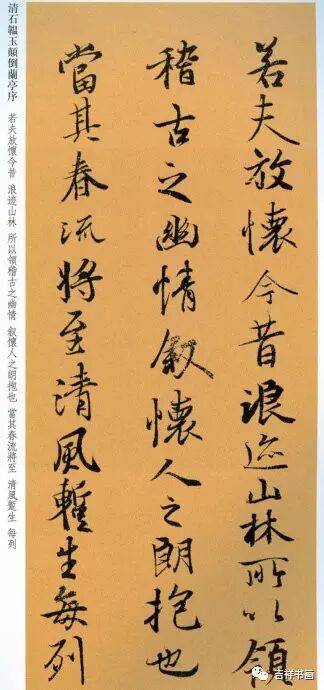 清石韞玉顛倒蘭亭序　若夫放懷今昔　浪迹山林　所以領稽古之幽情　叙懷人之朗抱也　當其春流將至　清風蹔生　每列
若夫放懷今昔浪迹山林所以領
稽古之幽情叙懷人之朗抱也
當其春流將至清風蹔生每列
吉祥书画